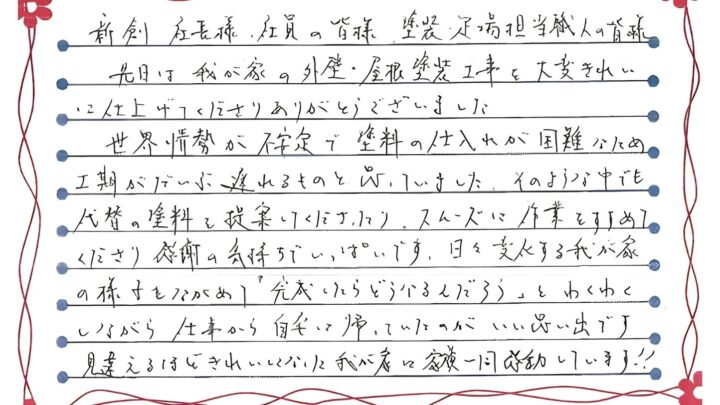 新創 社長様、社員の皆様 塗装、足場担当職人の皆様
先日は 我が家の外壁・屋根塗装工事を大変きれい
に仕上げてくださりありがとうございました
世界情勢が不安定で塗料の仕入れが困難なため
工期がだいぶ遅れるものと思っていました、そのような中でも
代替の塗料を提案してくださったり、スムーズに作業をすすめて
くださり 感謝の気持ちでいっぱいです。日々変化する我が家
の様子をながめて「完成したらどうなるんだろう」とわくわく
しながら 仕事から自宅に帰っていたのがいい思い出です
見違えるほどきれいになった我が家に家族一同感動しています!!